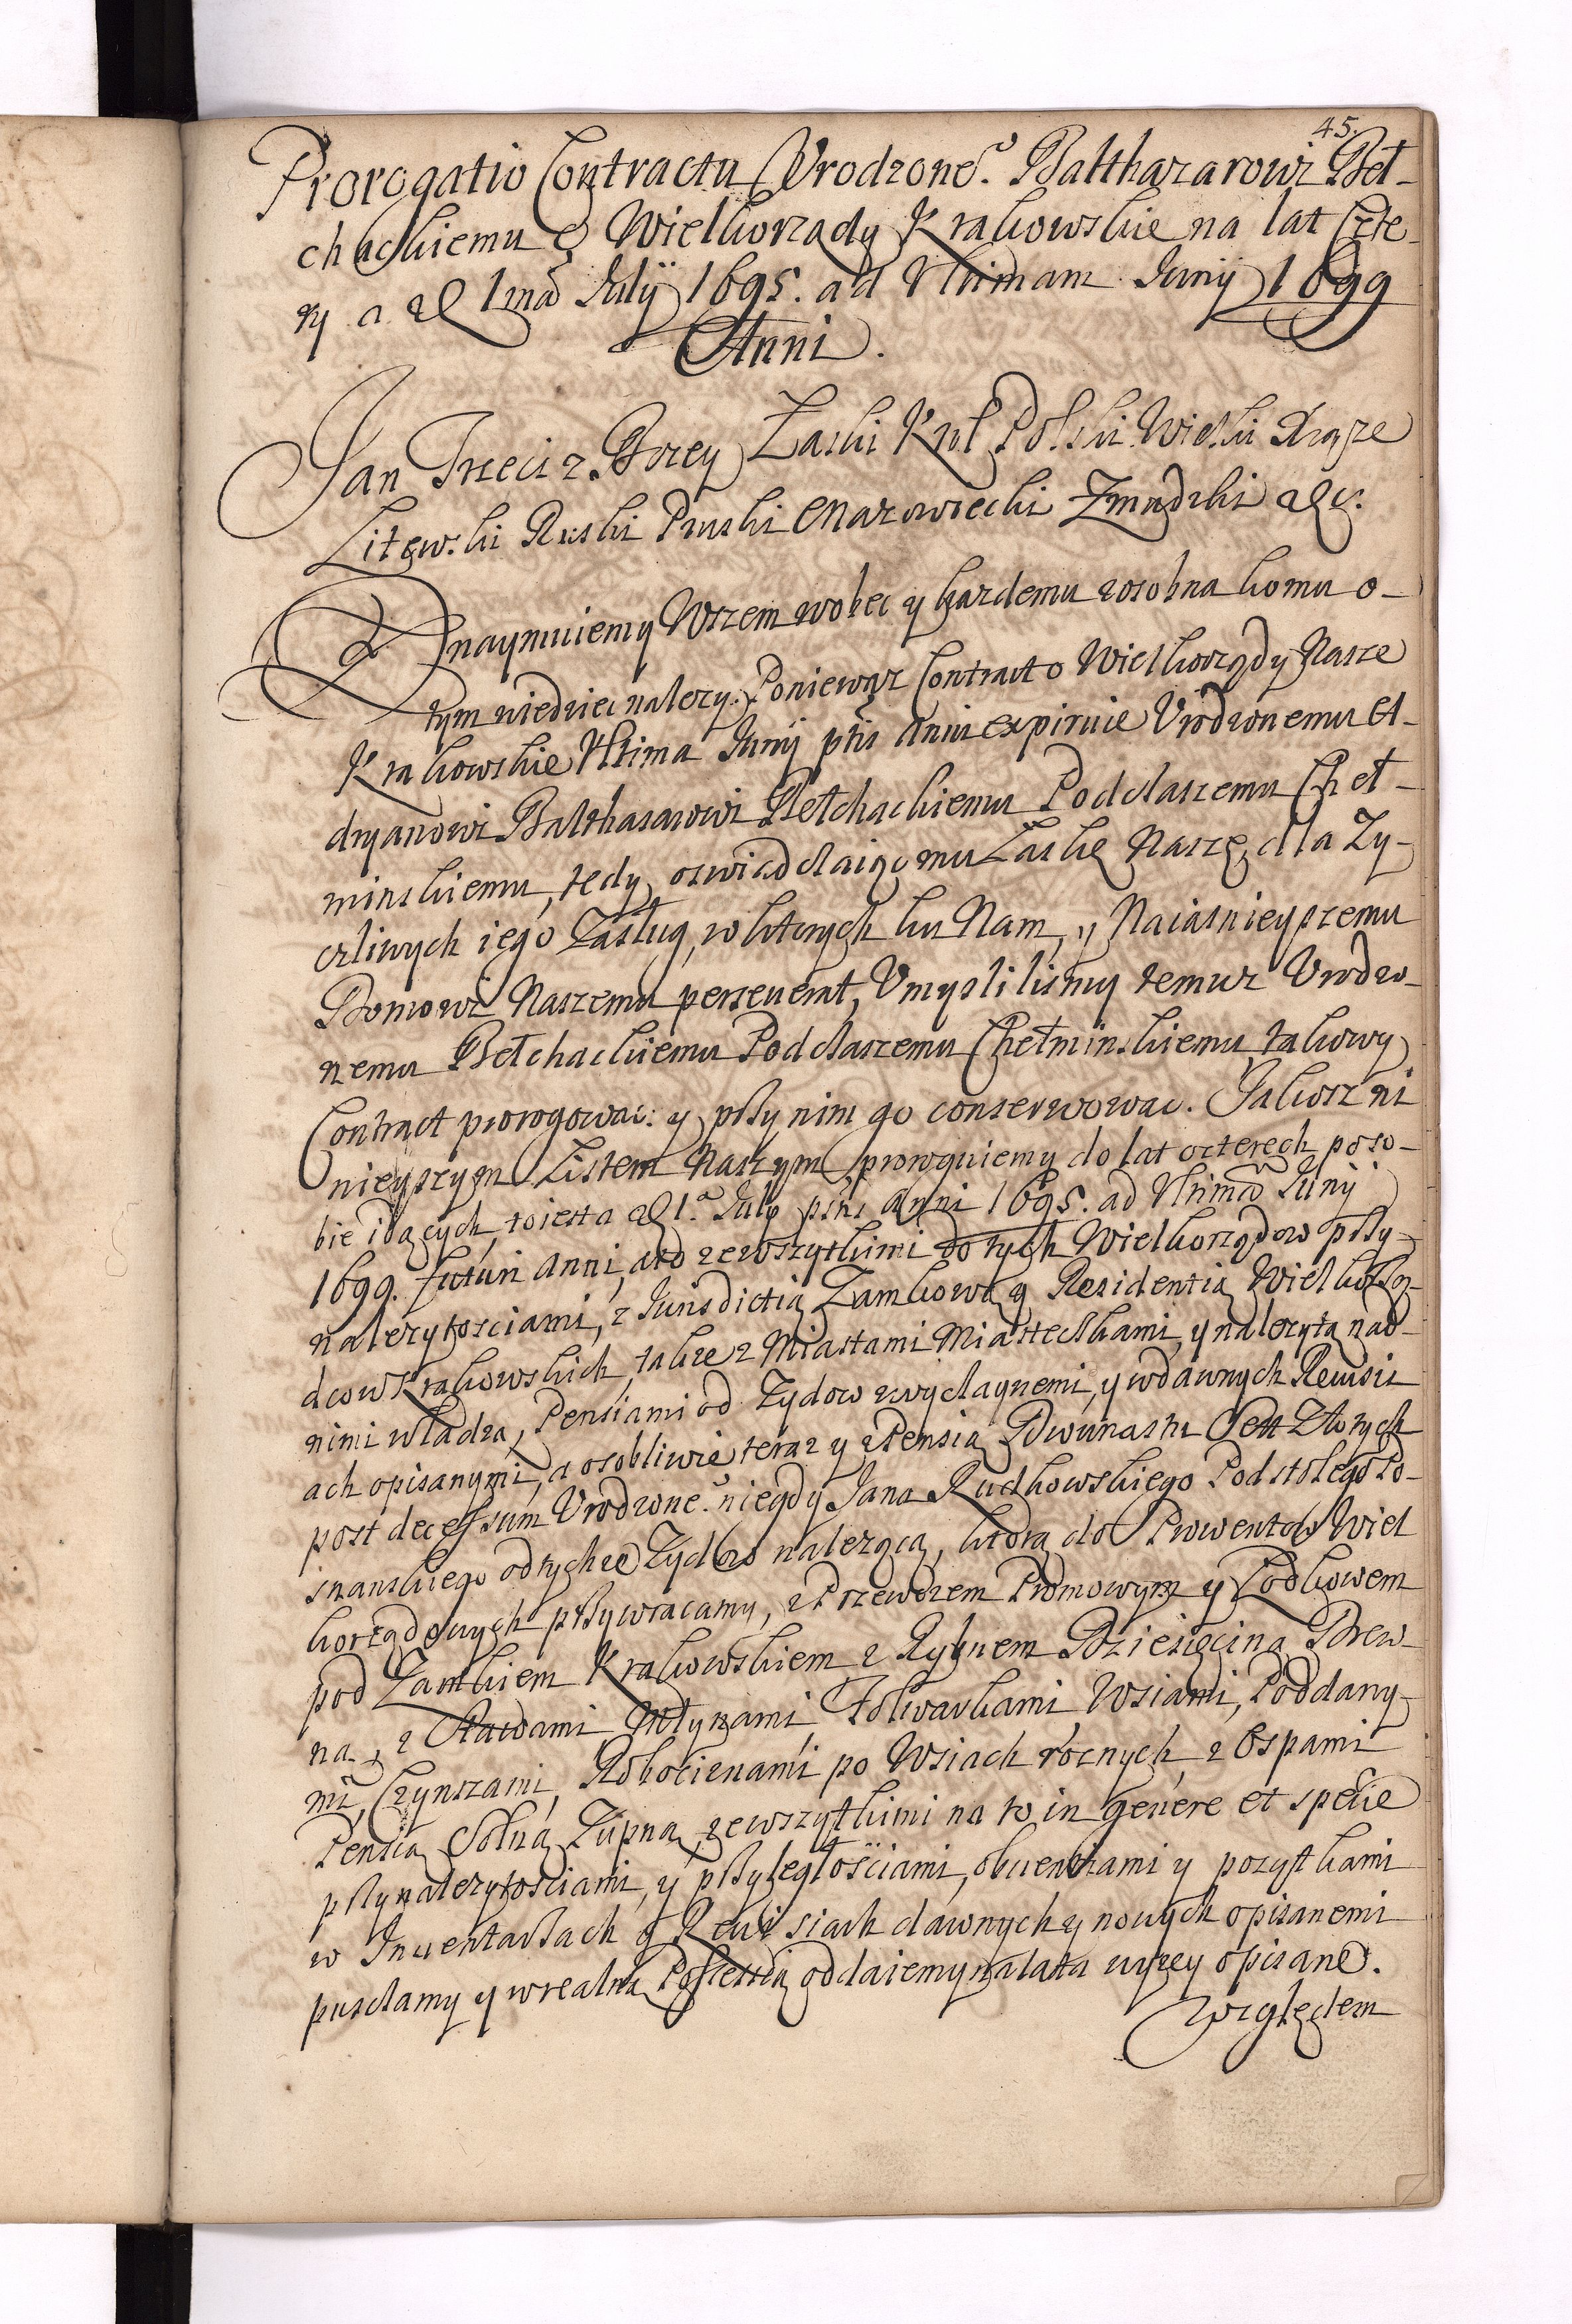 45.
Prorogatio Contractu Vrodzone.° Balthazarowi Beł-
chackiemu o Wielkorządy Krakowskie na lat Czte-
ry a 1ma Julÿ 1695. ad Vltimam Junÿ 1699
Anni.
Jan Trzeci z Bozey Łaski Krol Polski Wielki Xiąze
Litewski Ruski Pruski Mazowiecki Zmudzki &c.
Znaymuiemy Wszem wobec y kazdemu zosobna komu o-
tym wiedziec nalezy. Poniewaz Contract o Wielkorządy Nasze
Krakowskie Vltima Junÿ pñs Anni expiruie Vrodzonemu A-
dryanowi Balthasarowi Bełchackiemu Podczaszemu Cheł-
minskiemu, tedy oswiadczaiąc mu Łaskę Naszę, dla Zy-
czliwych iego Zasług, w ktorych ku Nam, y Naiasnieyszemu
Domowi Naszemu perseverat, Vmyslilismy temuz Vrodzo-
nemu Bełchackiemu Podczaszemu Chełminskiemu takowy
Contract prorogowac: y przy nim go conserwowac. Jakosz ni
nieyszym Listem Naszym proroguiemy do lat czterech poso-
bie idących, toiest a 1.a July pñs Anni 1695. ad Vltimã Junÿ
1699. futuri Anni, ato zewszytkimi do tych Wielkorządow przy-
nalezytosciami, z Jurisdictią Zamkową y Residentią Wielkorzą-
dcow Krakowskich, takze z Miastami Miasteczkami, y nalezytą nad
nimi władzą, Pensiami od Zydow zwyczaynemi, y wdawnych Rewisii
ach opisanymi, a osobliwie teraz y zPensią Dwunastu Set Złotych
post decessum Vrodzone.° niegdy Jana Rudkowskiego Podstolego Po-
znanskiego odtychze Zydow nalezącą, ktorą do Prowentow Wiel
korządowych przywracamy, z Przewozem Promowym y Łodkowem
pod Zamkiem Krakowskiem z Rybnem Dziesięciną Drew-
na, z Stawami Młynami, Folwarkami Wsiami, Poddany-
mi, Czynszami, Robociznami po Wsiach rocnych, z Ospami
Pensią Solną Zupną, zewszytkimi na to in genere et specie
przynalezytosciami, y przyległosciami, obwentiami y pozytkami
w Inwentarzach y Rewisiach dawnych y nowych opisanemi
pusczamy y wrealną Possessią oddaiemy na lata wyzey opisane.
Względem